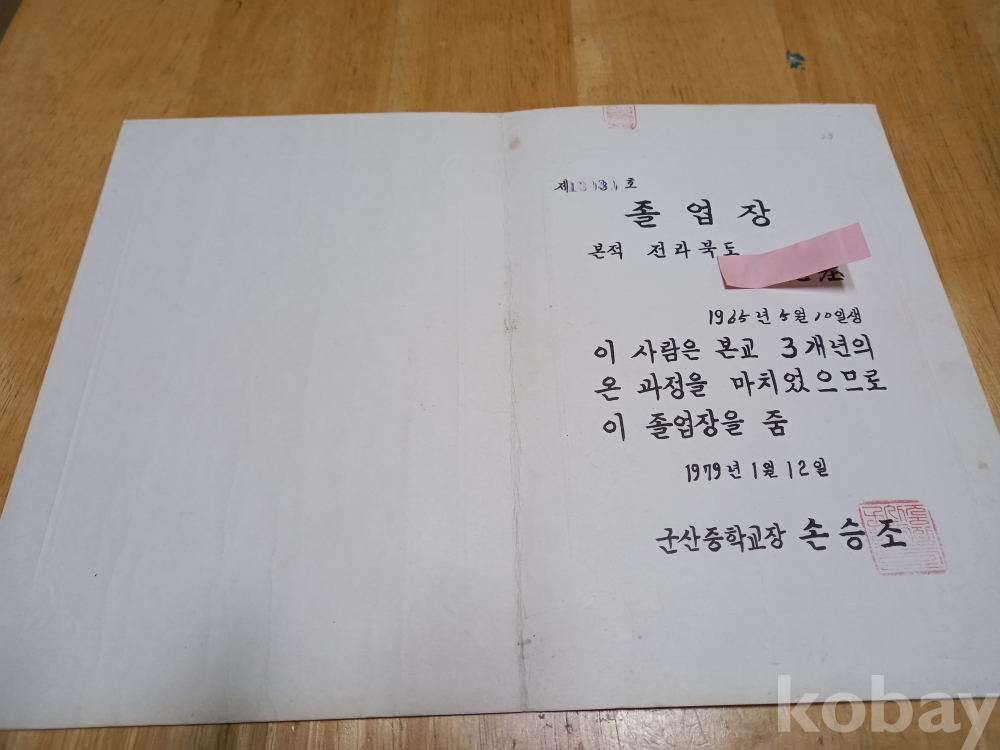 제 호
졸 업 장
본적 전라북도
1965년 5월 10일생
이 사람은 본교 3개년의
온 과정을 마치었으므로
이 졸업장을 줌
1979년 1월 12일
군산중학교장 손승조
kobay